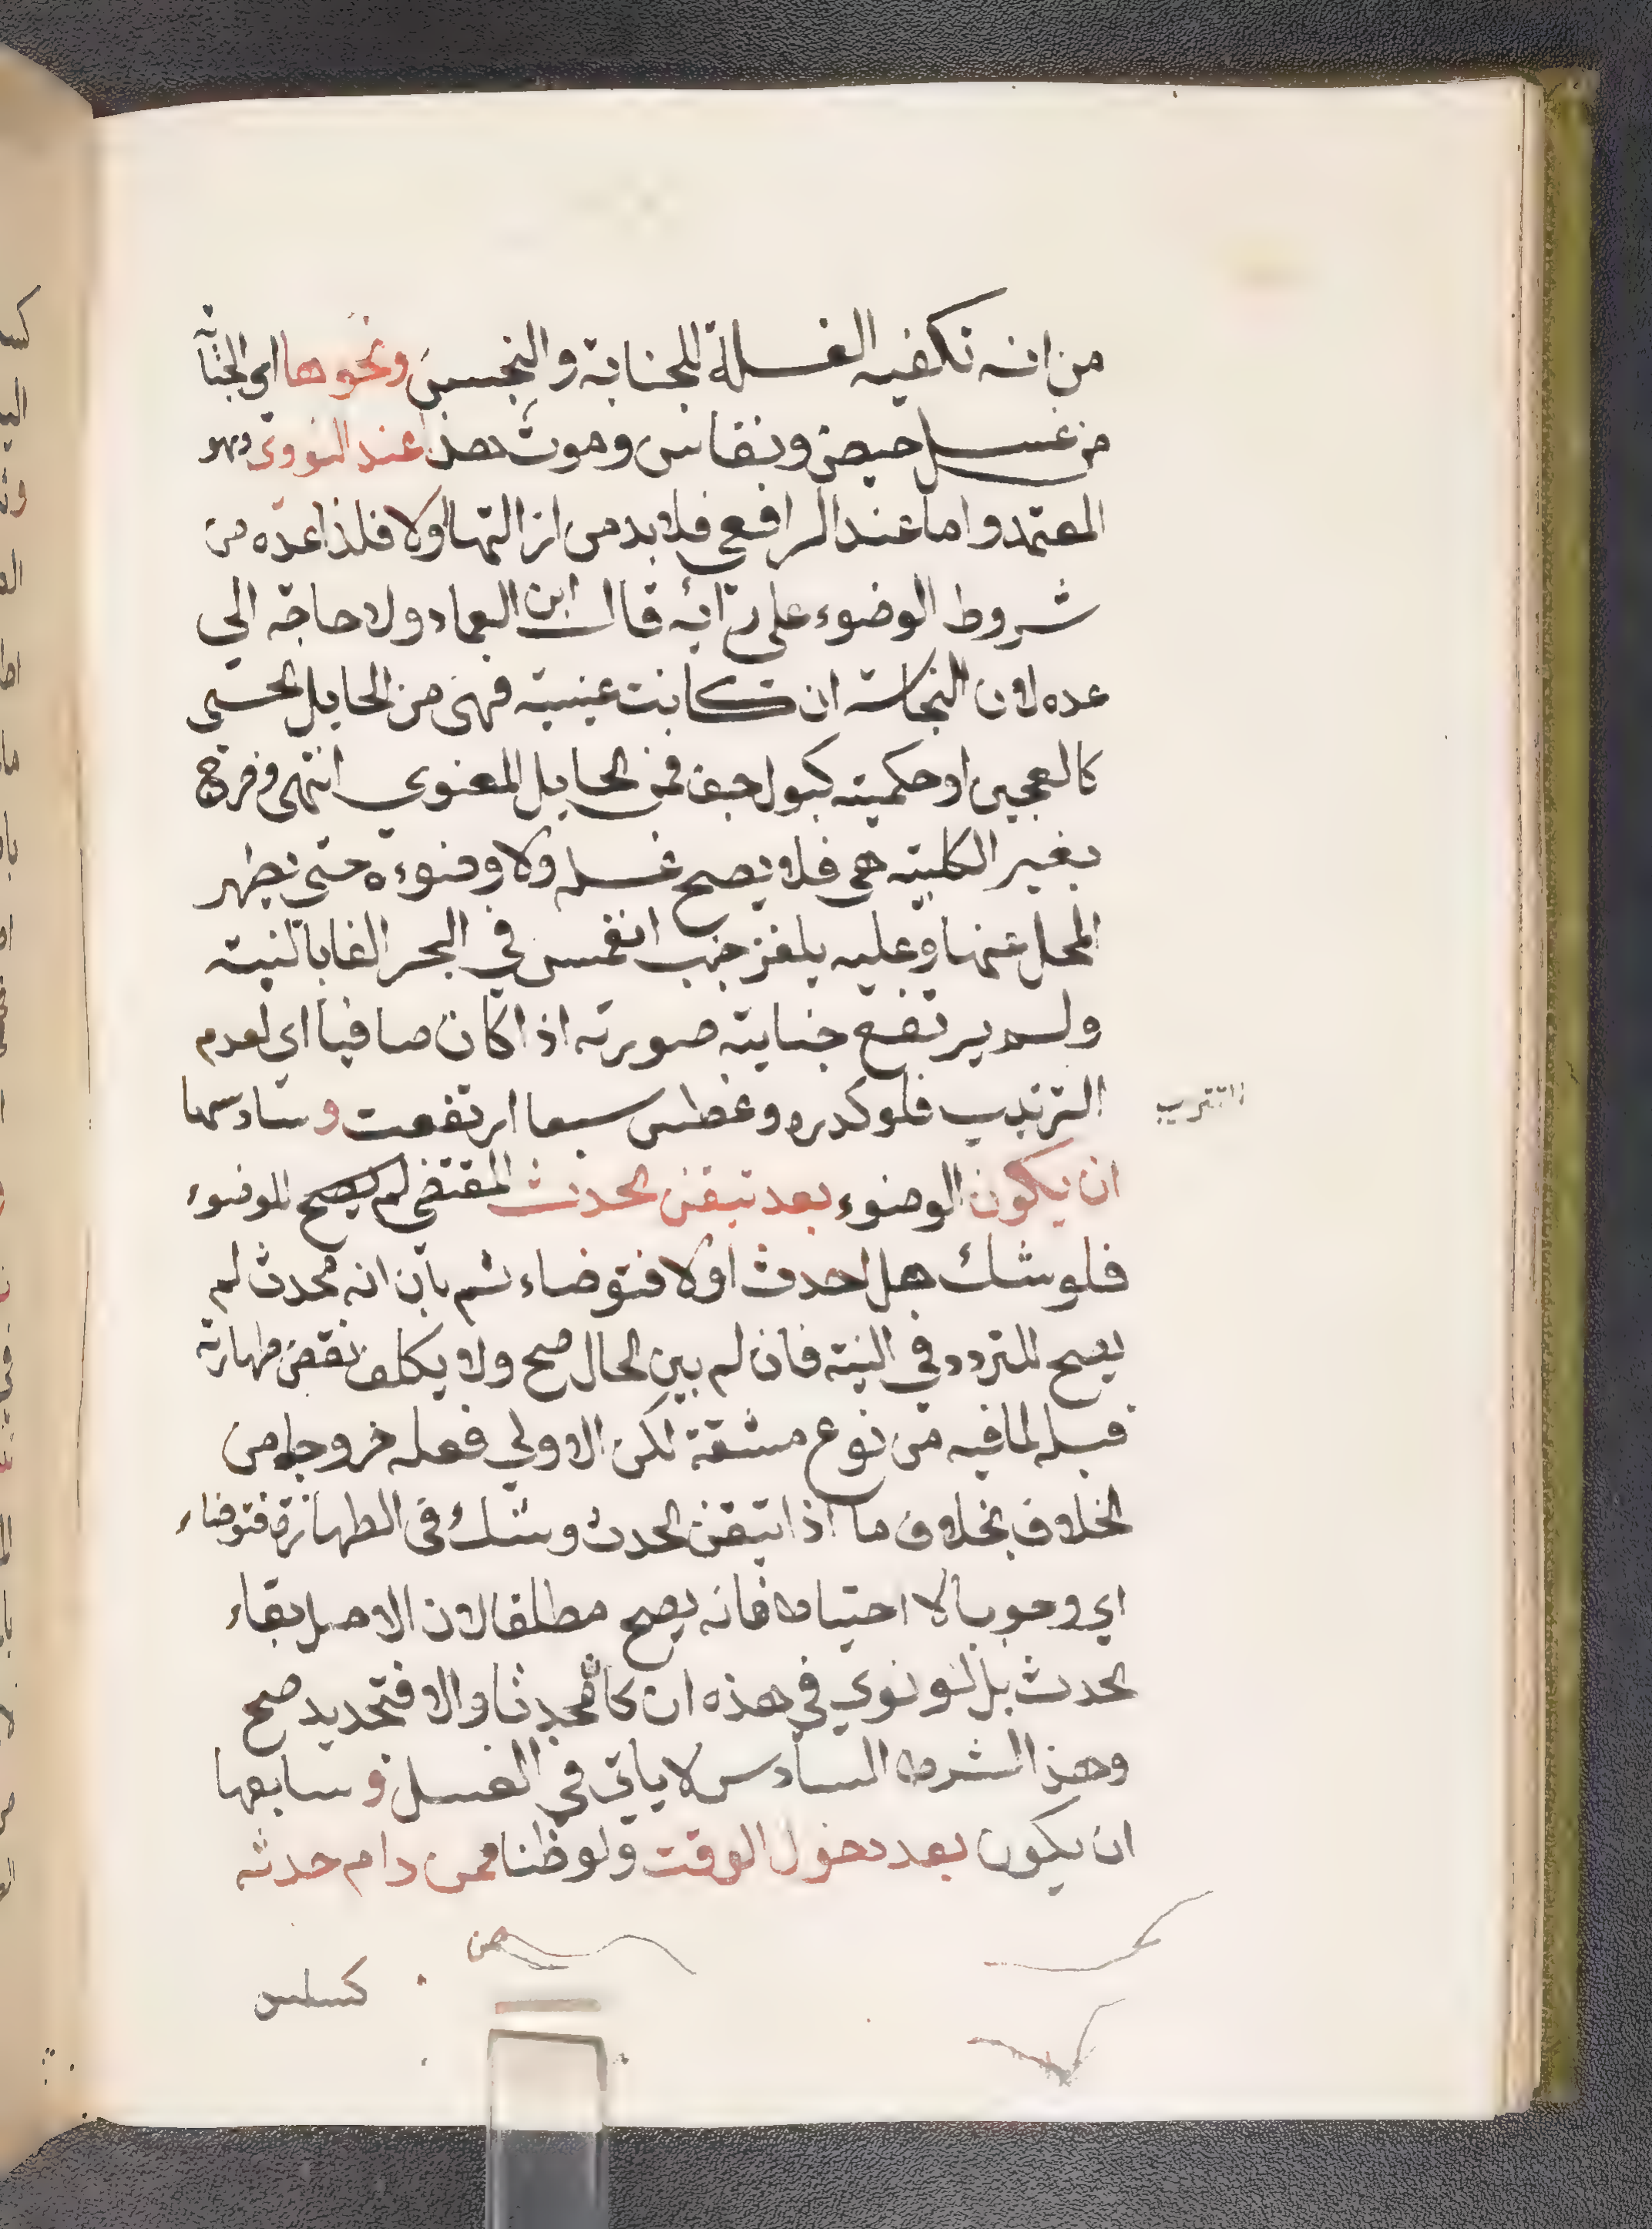 من انه تكفيه الغسلة للجنابة والنجس ونحوها اي الجنابة
من غسل حيض ونفاس وموت هذا عند النووي وهو
المعتمد واما عند الرافعي فلا بد من ازالتها اولا فلذا عده من
شروط الوضوء على رايه قال ابن العماد ولا حاجة الي
عده لان النجاسة ان كانت عينية فهي من الحايل الحسي
كالعجين او حكمية كبول جف فمن الحايل المعنوي انتهى وخرج
بغير الكلبية هي فلا يصح غسله ولا وضوءه حتى يطهر
المحل عنها وعليه يلغز جنب انغمس في البحر الفا بالنية
ولم يرتفع جنابته صورته اذا كان صافيا اي لعدم
التتريب فلو كدره وغطس سبعا ارتفعت وسادسها
التتريب
ان يكون الوضوء بعد تيقن الحدث المقتضي لم يصح الوضوء
فلو شك هل احدث اولا فتوضاء ثم بان انه محدث لم
يصح للتردد في النية فان لم يبن الحال صح ولا يكلف نقض طهارته
قبله لما فيه من نوع مشقة لكن الاولي فعله خروجا من
الخلاف بخلاف ما اذا تيقن الحدث وشك في الطهارة فتوضاء
اي وجوبا لا احتياطا فانه يصح مطلقا لان الاصل بقاء
لحدث بل لو نوي في هذه ان كان محدثا والا فتجديد صح
وهذا الشرط السادس لا ياتي في الغسل وسابعها
ان يكون بعد دخول الوقت ولو ظنا ممن دام حدثه
كسلس